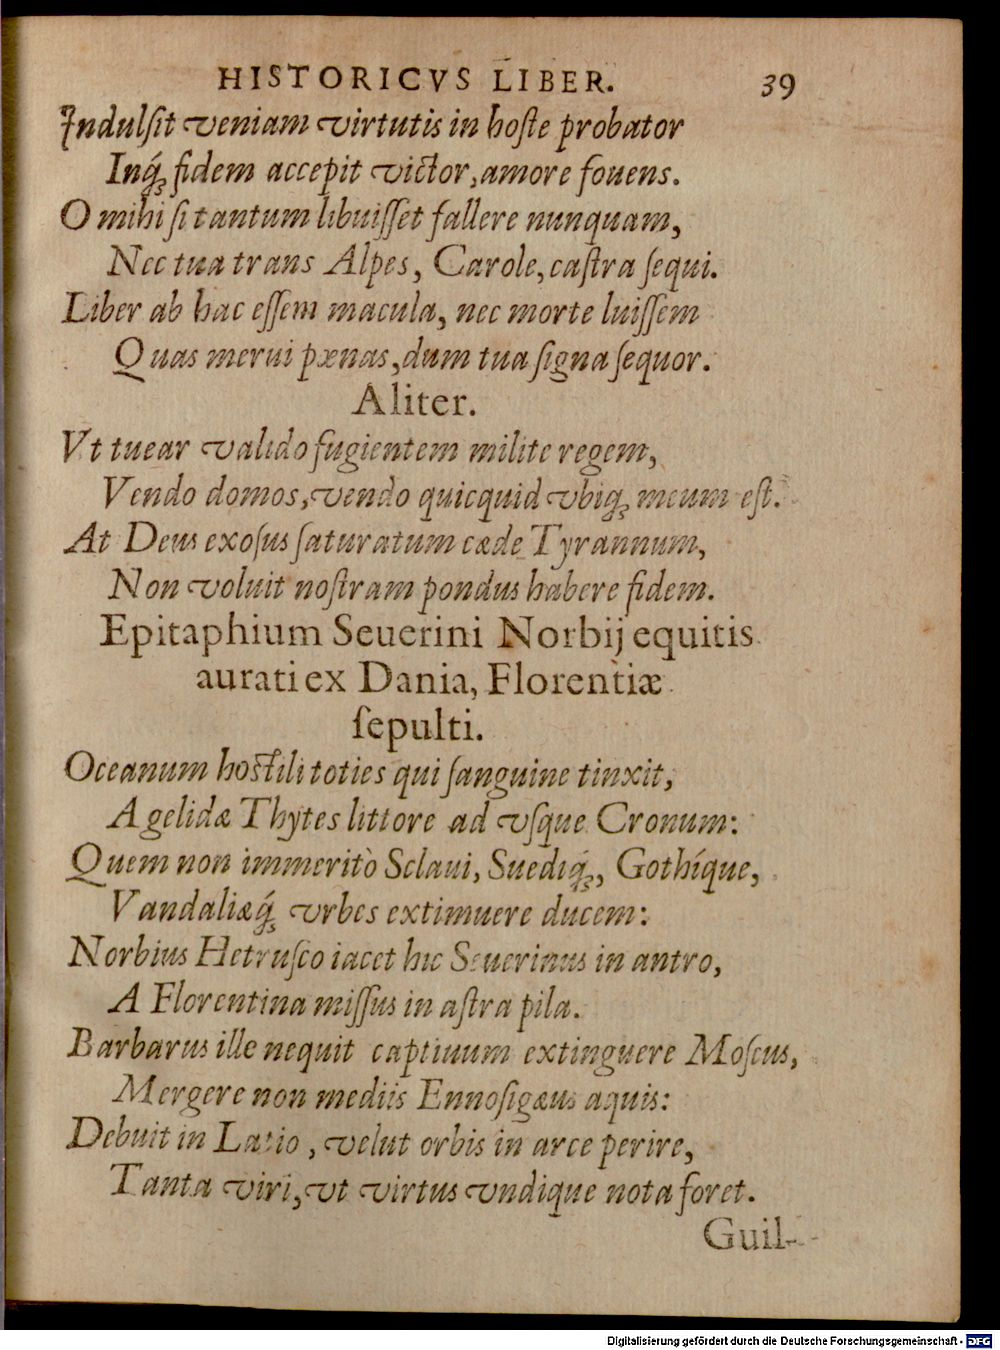 HISTORICVS LIBER. 39
Indulſit veniam virtutis in hoſte probator
Inq́; fidem accepit victor, amore fouens.
O mihi ſi tantum libuiſſet fallere nunquam,
Nec tua trans Alpes, Carole, caſtra ſequi.
Liber ab hac eſſem macula, nec morte luiſſem
Quas merui pœnas, dum tua ſigna ſequor.
Aliter.
Vt tuear valido fugientem milite regem,
Vendo domos, vendo quicquid vbiq; meum eſt.
At Deus exoſus ſaturatum cæde Tyrannum,
Non voluit noſtram pondus habere fidem.
Epitaphium Seuerini Norbij equitis
aurati ex Dania, Florentiæ
ſepulti.
Oceanum hoſtili toties qui ſanguine tinxit,
A gelidæ Thytes littore ad vſque Cronum:
Quem non immeritò Sclaui, Suediq́;, Gothíque,
Vandaliæq́; vrbes extimuere ducem:
Norbius Hetruſco iacet hic Seuerinus in antro,
A Florentina miſſus in aſtra pila.
Barbarus ille nequit captiuum extinguere Moſcus,
Mergere non mediis Ennoſigæus aquis:
Debuit in Latio, velut orbis in arce perire,
Tanta viri, vt virtus vndique nota foret.
Guil-
Digitalisierung gefördert durch die Deutsche Forschungsgemeinschaft - DFG